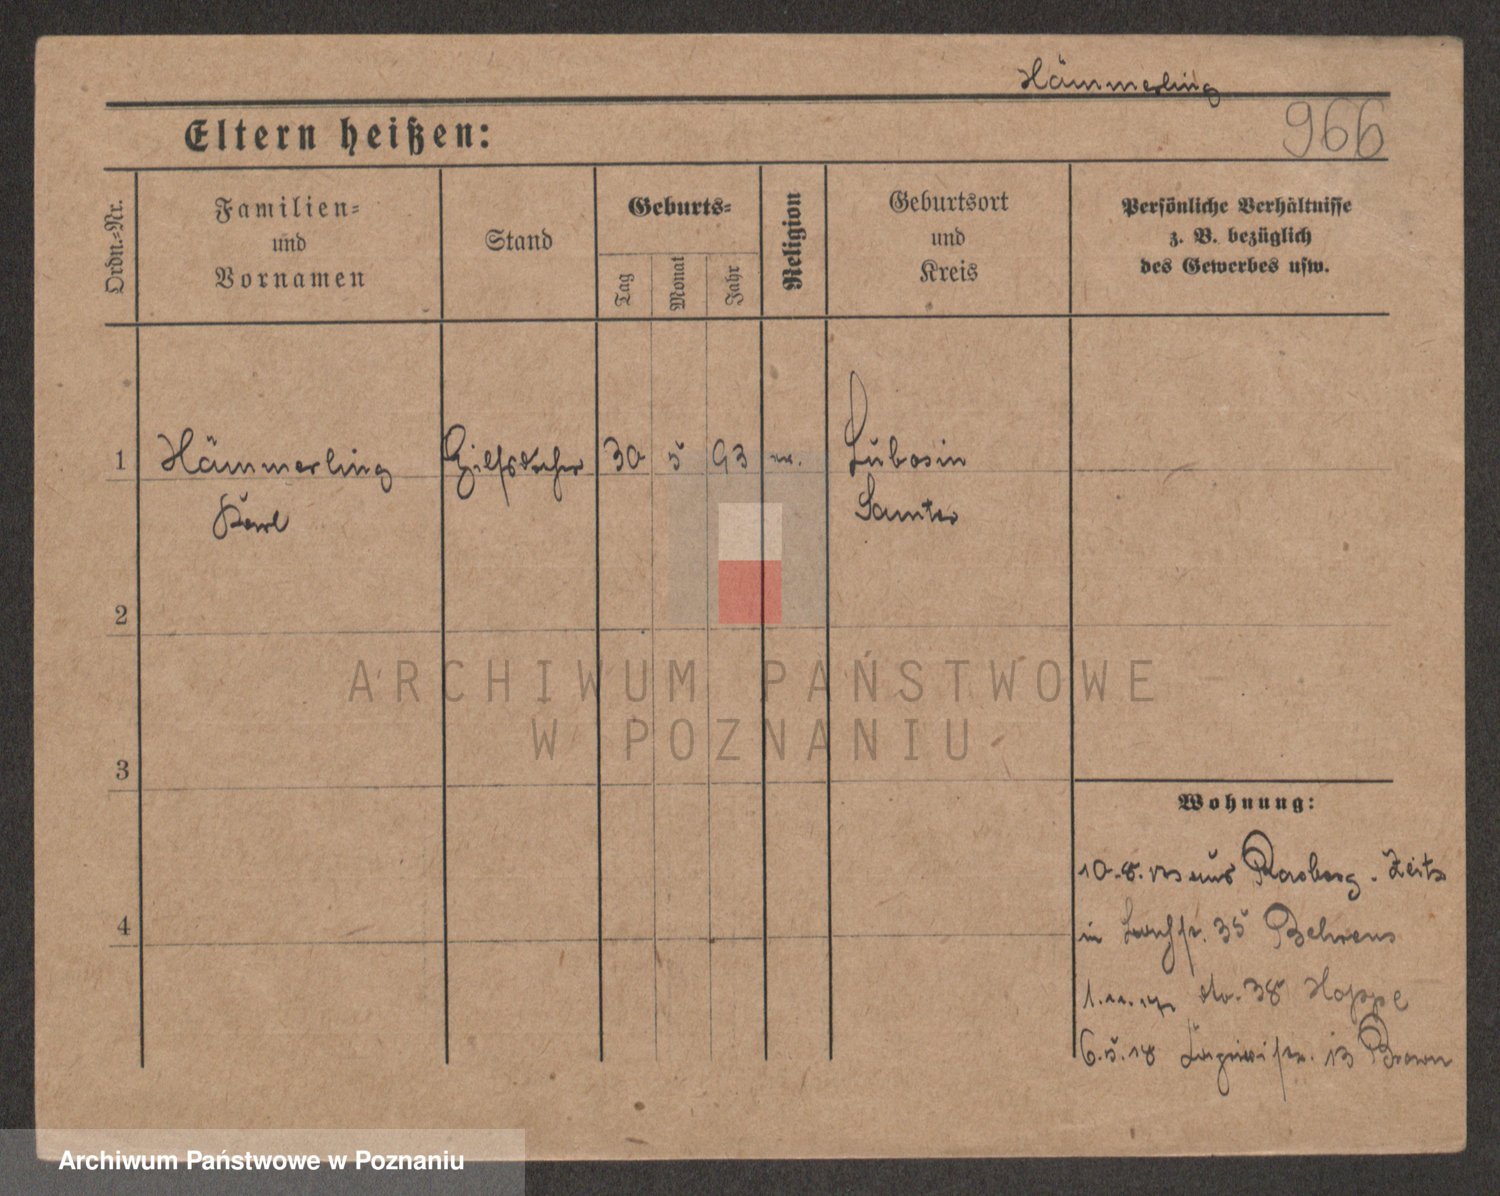 Hämmerling
966
Eltern heißen:
Ordn.-Nr.
Familien-
und
Vornamen
Stand
Geburts-
Tag
Monat
Jahr
Religion
Geburtsort
und
Kreis
Persönliche Verhältnisse
z. B. bezüglich
des Gewerbes usw.
1 Hämmerling 30 5 93 Lubosin
Karl Samter
2
ARCHIWUM PAŃSTWOWE
W POZNANIU
3
Wohnung:
10.8. aus Zeitz
4
in 35 Behrens
1.11.17 do. 38 Hoppe
6.5.18 13
Archiwum Państwowe w Poznaniu